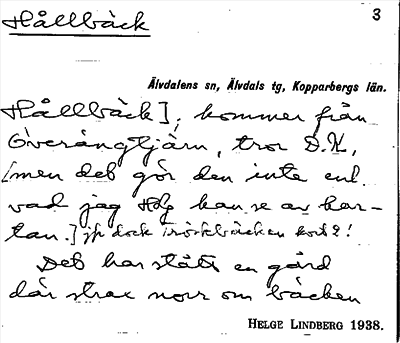 Hållbäck
3
Älvdalens sn, Älvdals tg, Kopparbergs län.
Hållbäck], kommer från
Överängtjärn, tror D.K.,
[men det gör den inte enl.
vad jag kan se av kar-
tan.] jfr dock kort 2!
Det har stått en gård
där strax norr om bäcken
HELGE LINDBERG 1938.